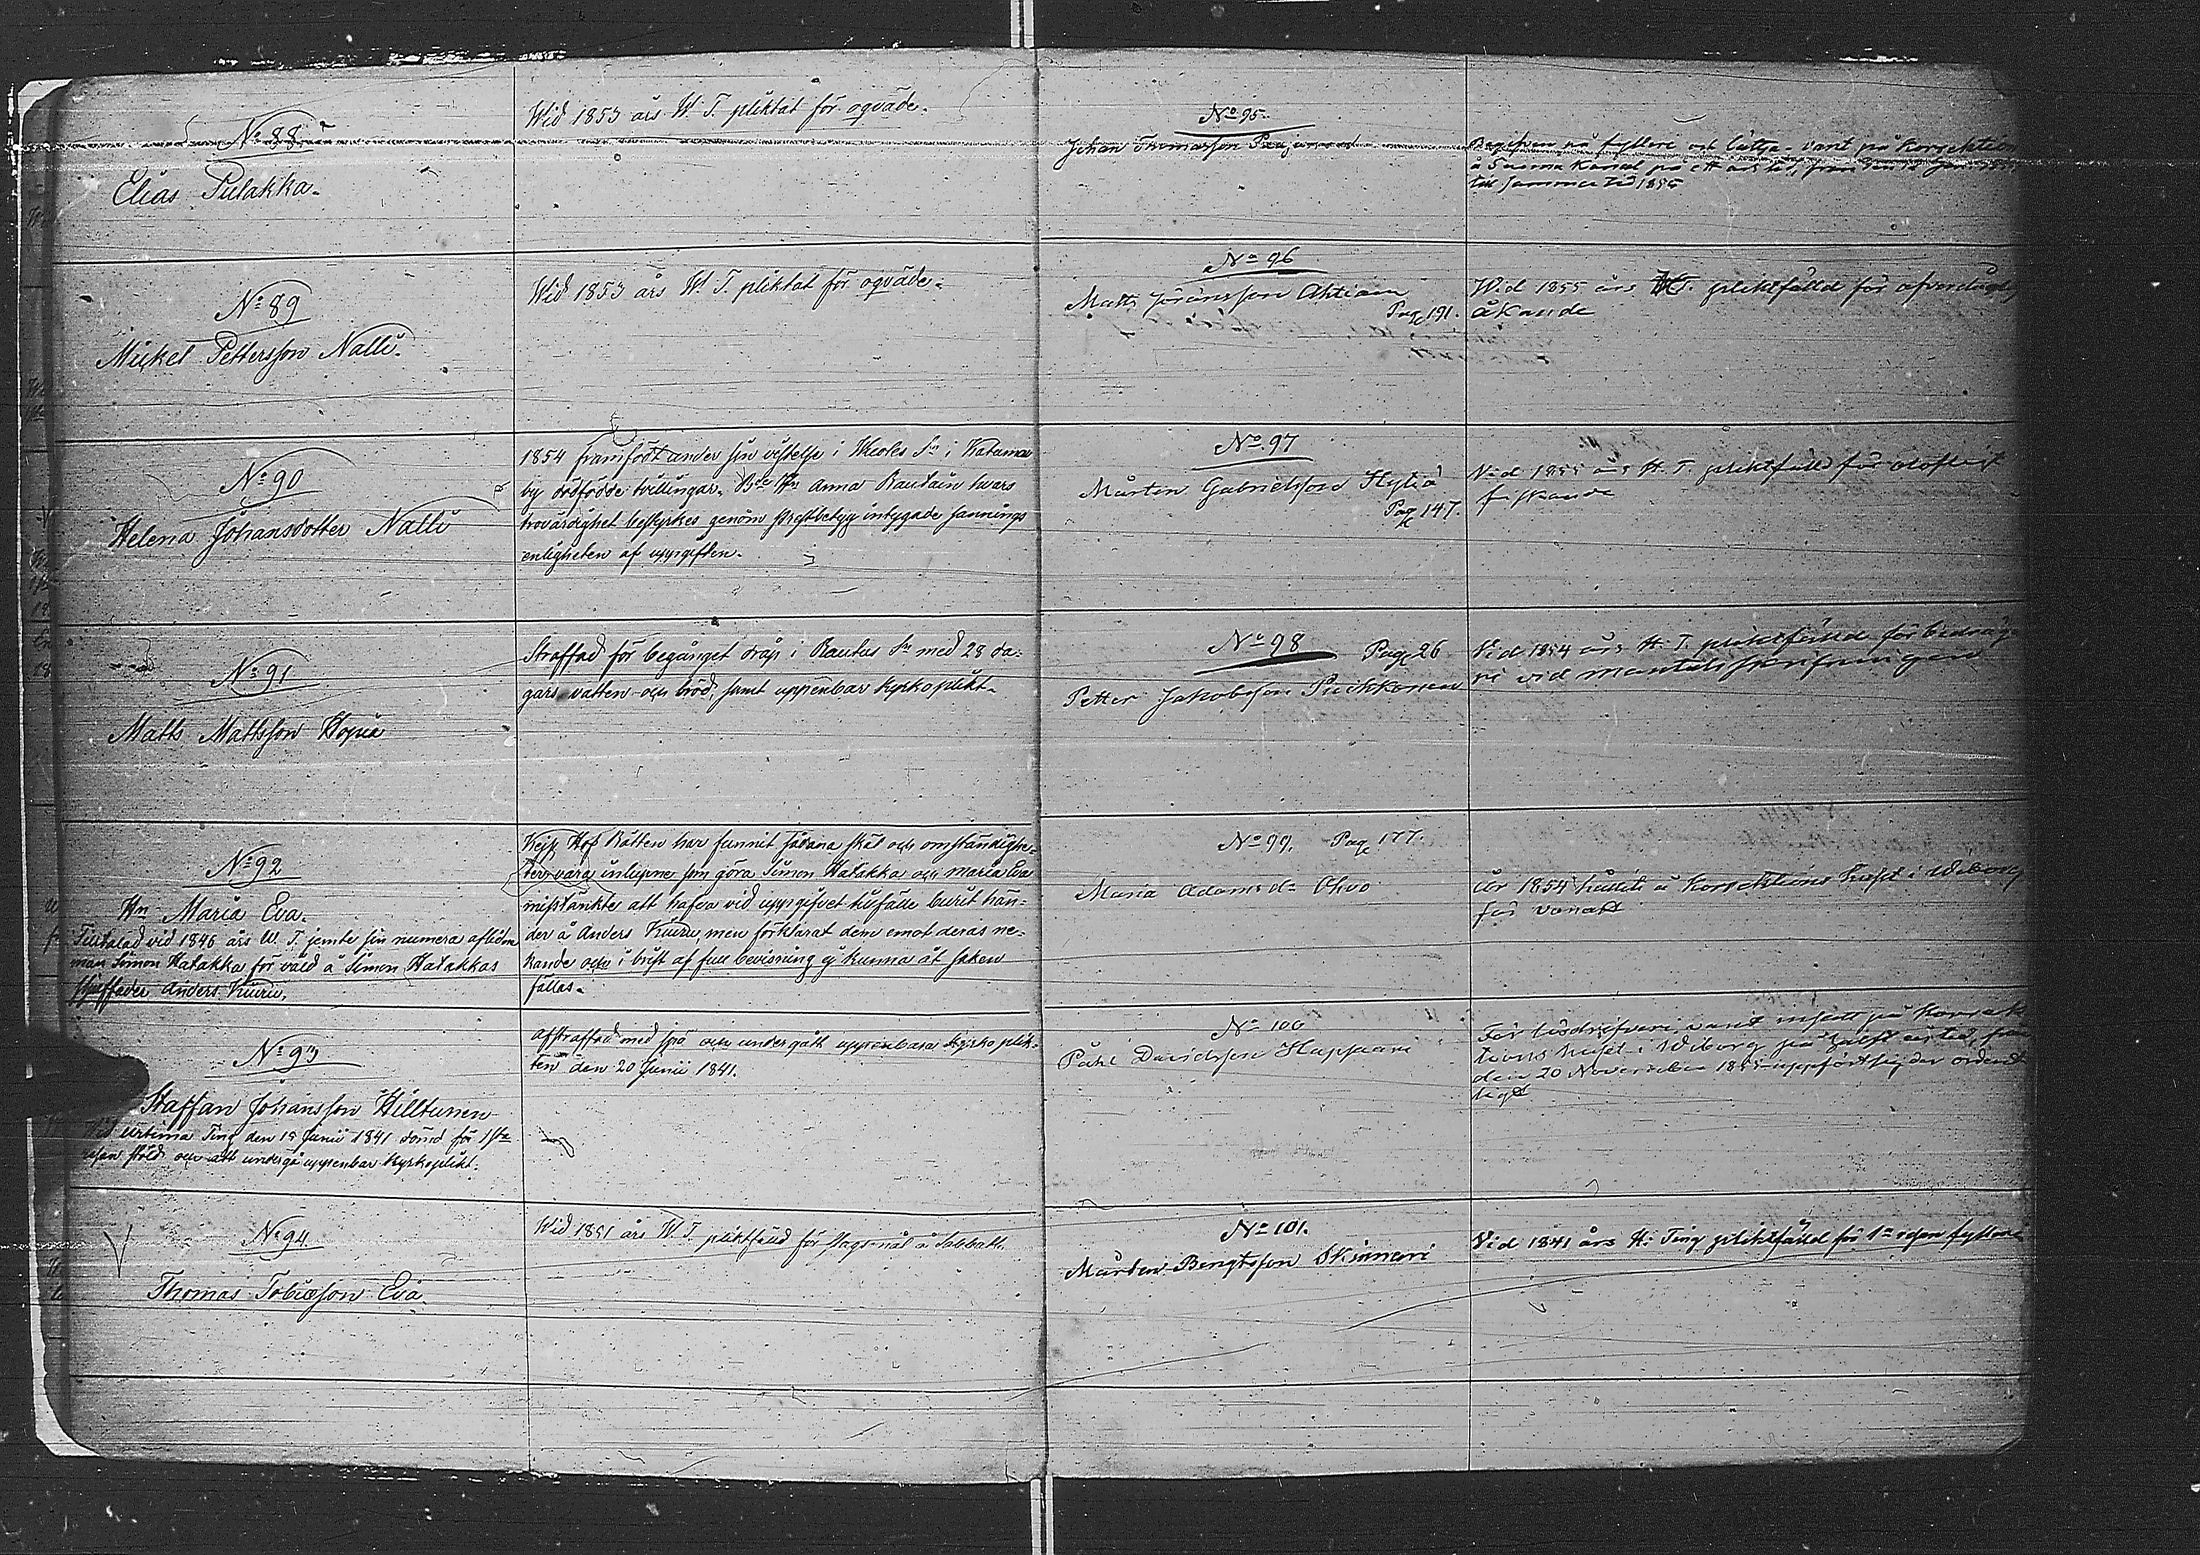 No 88
Elias Pulakka.
Wid 1853 års W. T. pliktat för oqväde.
No 89
Mickel Pettersson Nalli.
Wid 1853 års W. T. pliktat för oqväde.
No 90
Helena Johansdotter Nalli
1854 framfödt under sin vistelse i Sn i
by dödfödde tvillingar. Hn Anna Rautain hvars
trovärdighet bestyrkes genom prestbetyg intygade sannings
enligheten af uppgiften.
No 91
Matts Mattsson Hopia
Straffad för begånget dråp i Rautus Sn med 28 da-
gars vatten och bröd samt uppenbar kyrkoplikt.
No 92
Hn Maria Eva.
Tilltalad vid 1846 års W. T. jemte sin numera aflidne
man Simon Hatakka för våld å Simon Hatakkas
Anders Kiuru.
Kejs. Hof Rätten har funnit sådana skäl och omständighe-
ter vara som göra Simon Hatakka och Maria Eva
misstänkte att hafva vid uppgifvet tillfälle burit hän-
der å Anders Kiuru, men förklarat dem emot deras ne-
kande och i brist af full bevisning ej kunna åt saken
fällas.
No 93
Staffan Johansson Hilltunen
Vid urtima Ting den 15 Junii 1841 dömd för 1sta
resan stöld och att undergå uppenbar kyrkoplikt.
Afstraffad med spö och undergått uppenbara kyrkoplik-
ten den 20 Junii 1841.
No 94
Thomas Tobiæson Eva.
Wid 1851 års W. T. pliktfälld för slagsmål å Sabbath.
No 95.
Johan Thomasson
på fylleri och lättja varit på Korrektion
på ett års tid, från den 12 Jan.
till samma tid 1855
No 96
Matts Göransson Ahtiain
Pag 191.
Wid 1855 års T. pliktfälld för
åkande
No 97
Mårten Gabrielsson Hyliä
Pag 147.
Vid 1855 års H. T. pliktfälld för olofligt
fiskande
No 98 Pag 26
Petter Jakobsson Puikkonen
Vid 1854 års H. T. pliktfälld för bedräge-
ri vid mantalsskrifningen
No 99. Pag 177.
Maria Adamsdr Ohvo
år 1854 hållits å Korrektions huset i Wiborg
för vanart
No 100
Påhl Davidsson Happoani
För lösdrifveri varit insatt på Korrek-
tions huset i Wiborg på halft års tid, från
den 20 November 1855 uppfört sig der ordent-
ligt
No 101.
Mårten Bengtsson Skinnari
Vid 1841 års H. Ting pliktfälld för 1a resan fylleri